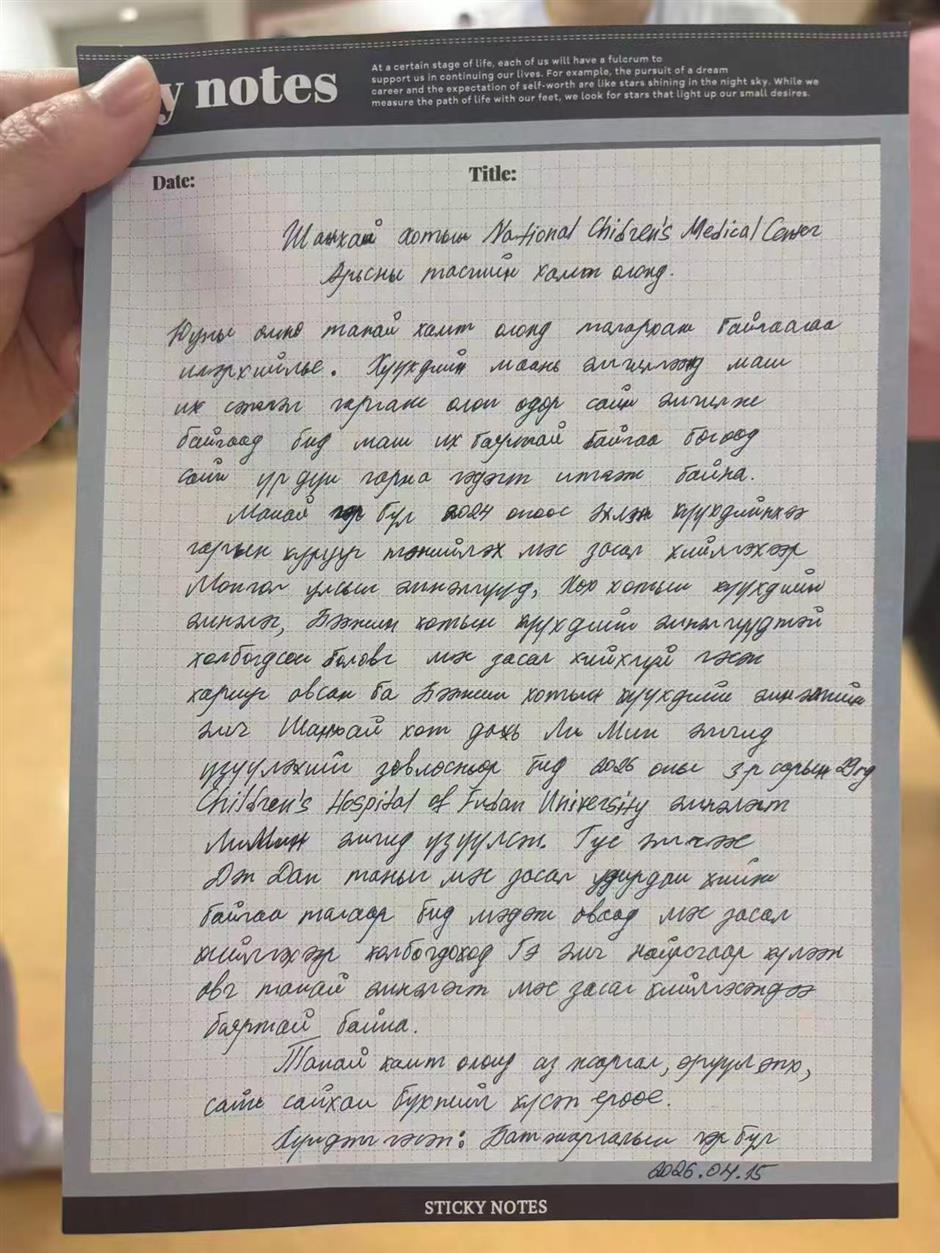 y notes
At a certain stage of life, each of us will have a fulcrum to
support us in continuing our lives. For example, the pursuit of a dream
career and the expectation of self-worth are like stars shining in the night sky. While we
measure the path of life with our feet, we look for stars that light up our small desires.
Date:
Title:
Шанхай хотын National Children's Medical Center
Арьсны тасгийн хамт олонд.
Юуны өмнө танай хамт олонд талархаж байгаагаа
илэрхийлье. Хүүхдийн маань эмчилгээнд маш
их сэтгэл гаргаж олон өдөр сайн эмчилж
байгаад бид маш их баяртай байгаа бөгөөд
сайн үр дүн гарна гэдэгт итгэж байна.
Манай гэр бүл 2024 оноос эхлэн хүүхдийнхээ
гарын хурууг тэнийлгэх мэс засал хийлгэхээр
Монгол улсын эмнэлгүүд, Хөх хотын хүүхдийн
эмнэлэг, Бээжин хотын хүүхдийн эмнэлгүүдтэй
холбогдсон боловч мэс засал хийхгүй гэсэн
хариуг авсан ба Бээжин хотын хүүхдийн эмнэлгийн
эмч Шанхай хот дахь Ли Мин эмчид
үзүүлэхийг зөвлөснөөр бид 2026 оны 3-р сарын 29нд
Children's Hospital of Fudan University эмнэлэгт
Ли Мин эмчид үзүүлсэн. Тус эмчээс
Дэн Дан таныг мэс засал удирдан хийж
байгаа талаар бид мэдэж аваад мэс засал
хийлгэхээр холбогдоход Гэ эмч найрсгаар хүлээн
авч танай эмнэлэгт мэс засал хийлгэсэндээ
баяртай байна.
Танай хамт олонд аз жаргал, эрүүл энх,
сайн сайхан бүхнийг хүсэн ерөөе.
Хүндэтгэсэн: Батжаргалын гэр бүл
2026.04.15
STICKY NOTES